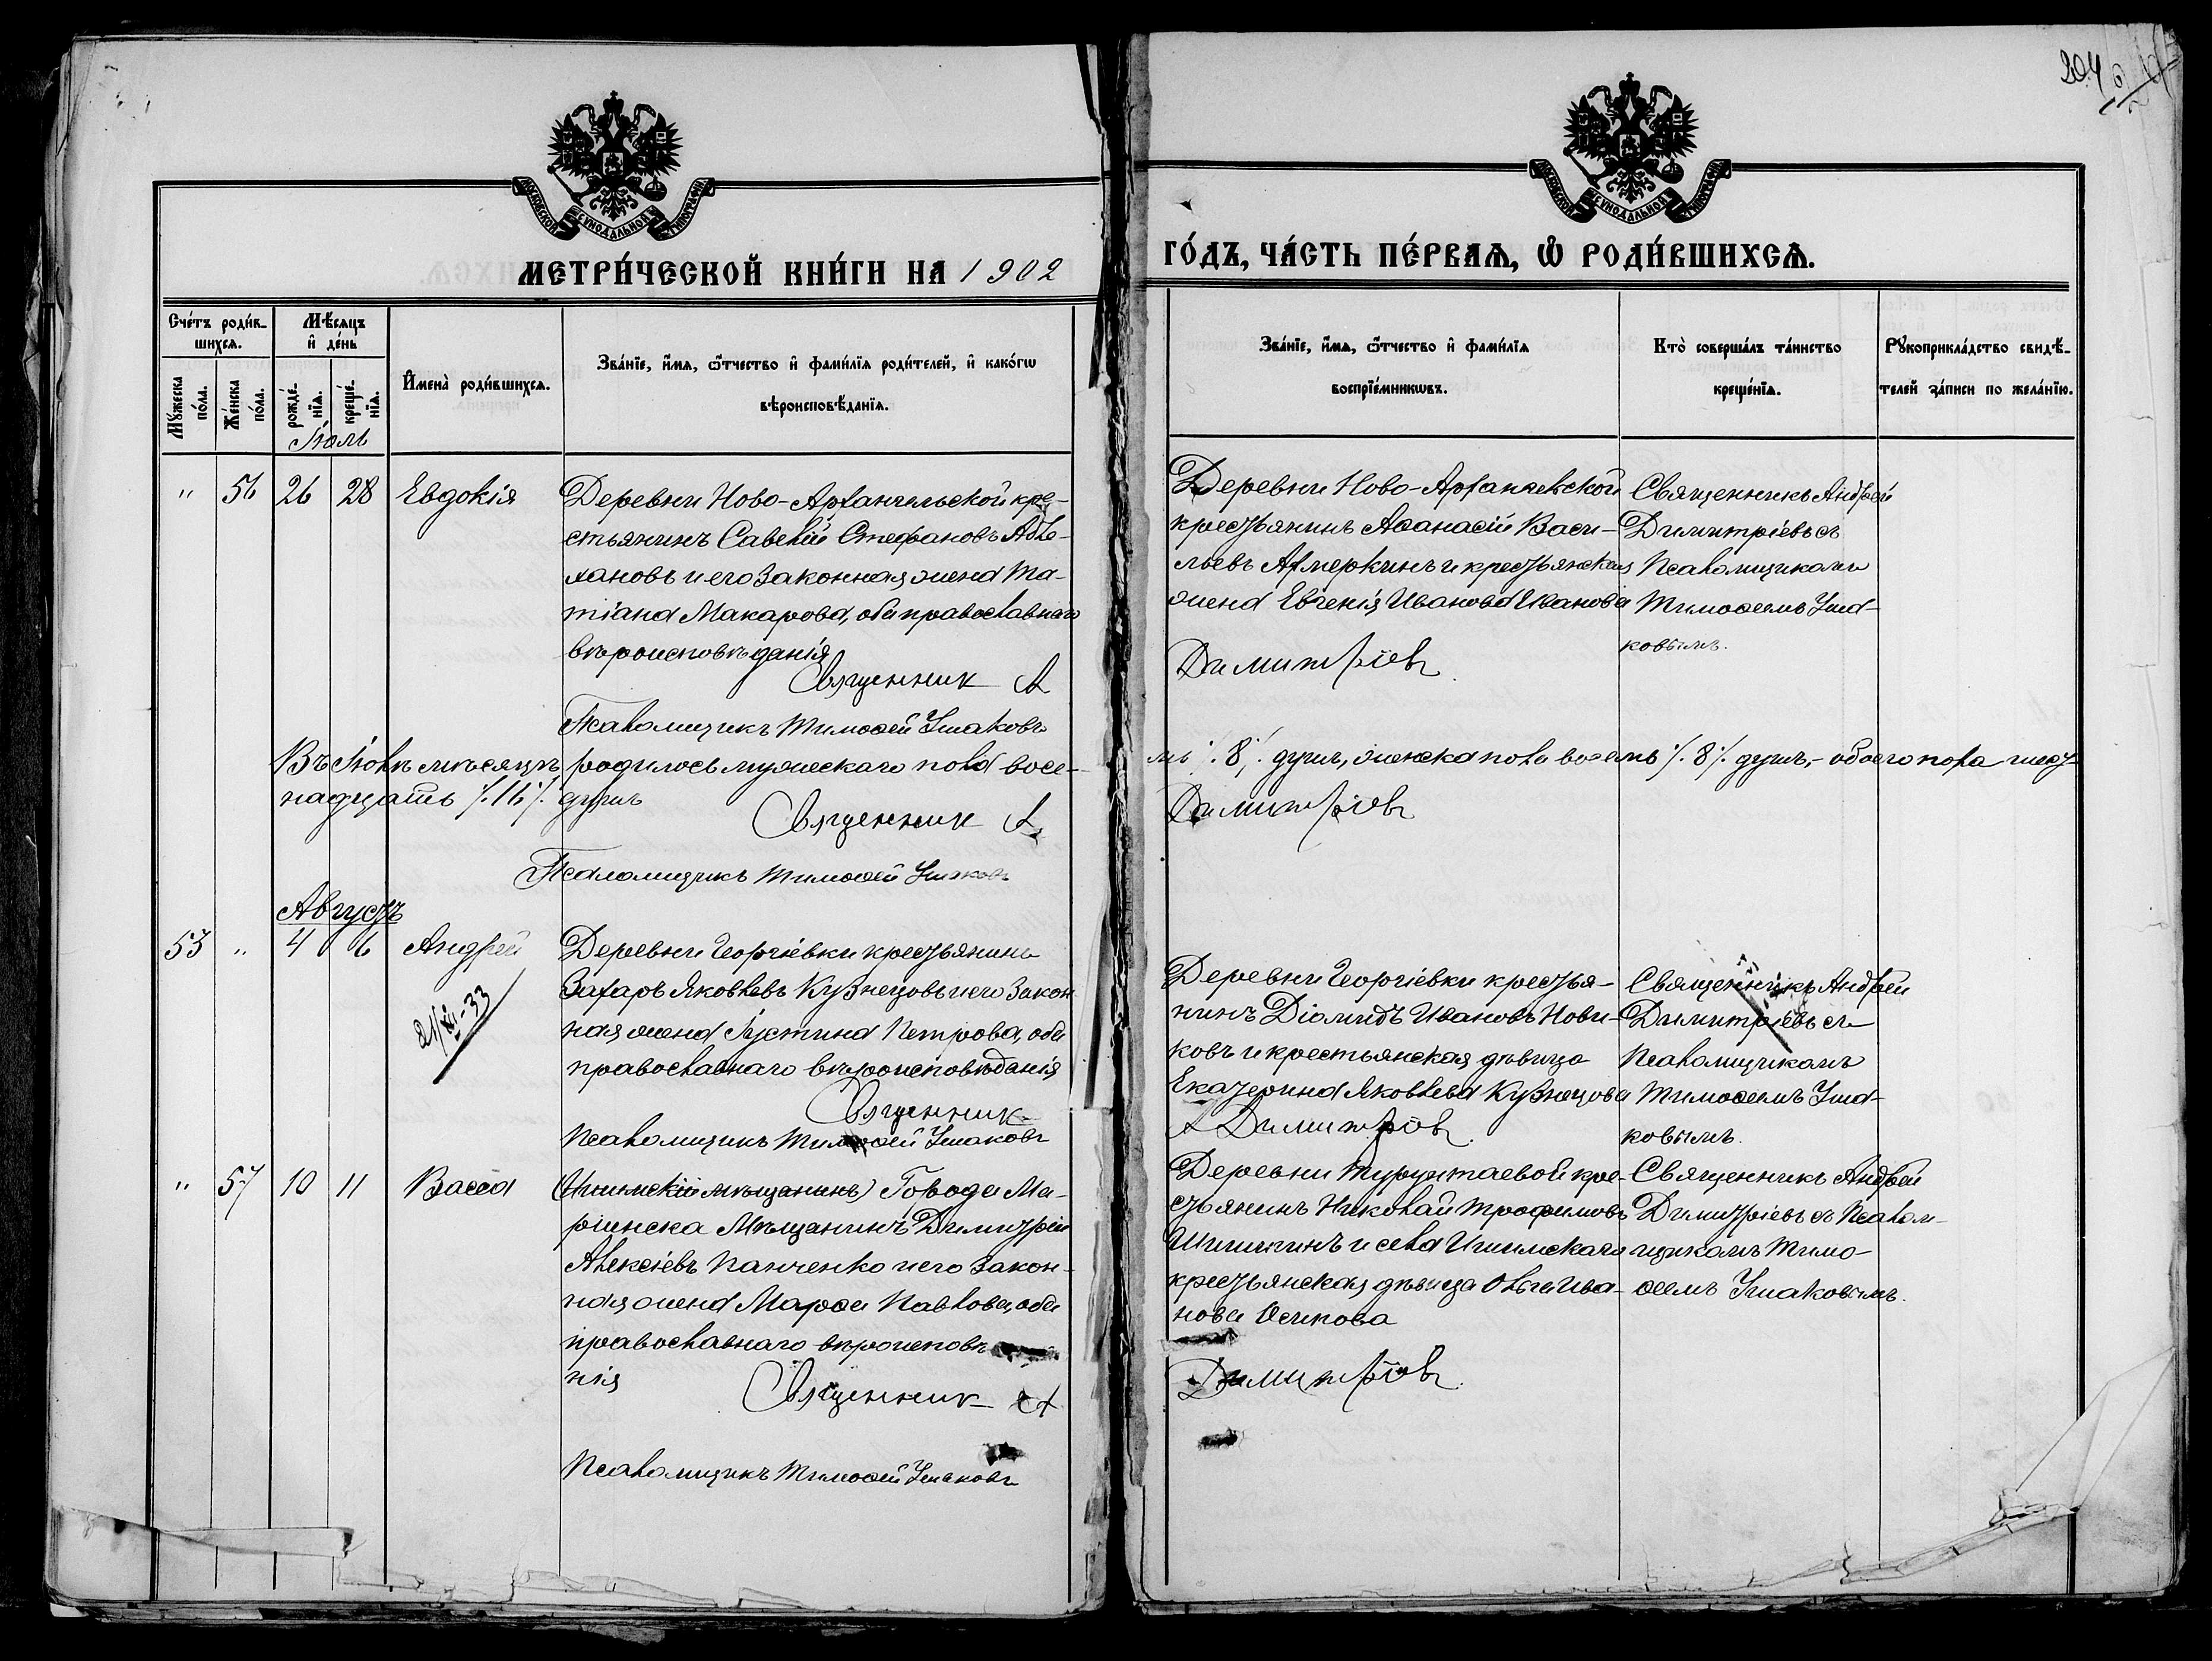 204
МОСКОВСКОЙ СУНОДАЛЬНОЙ ТИПОГРАФІИ
МОСКОВСКОЙ СУНОДАЛЬНОЙ ТИПОГРАФІИ
МЕТРИ́ЧЕСКОЙ КНИ́ГИ НА 1902
ГО́ДЪ, ЧА́СТЬ ПЕ́РВАѦ, Ѿ РОДИ́ВШИХСѦ.
Сче́тъ роди́в-
шихсѧ.
Мꙋ́жеска
по́ла.
Же́нска
по́ла.
Мѣ́сѧцъ
и҆ де́нь
рожде́-
нїѧ.
креще́-
нїѧ.
Іюль
И҆мена̀ роди́вшихсѧ.
Зва́нїе, и҆́мѧ, ѻ҆́тчество и҆ фами́лїѧ роди́телей, и҆ како́гѡ
вѣроисповѣ́данїѧ.
Зва́нїе, и҆́мѧ, ѻ҆́тчество и҆ фами́лїѧ
воспрїе́мникѡвъ.
Кто̀ соверша́лъ та́инство
креще́нїѧ.
Рꙋкоприкла́дство свидѣ́-
телей за́писи по жела́нїю.
" 56 26 28 Евдокія
Деревни Ново-Архангельской кре-
стьянинъ Савелій Стефановъ
и его законная жена Та-
тіана Макарова, оба православнаго
вѣроисповѣданія
Священник А
Псаломщикъ Тимоѳей Ушаковъ
Деревни Ново-Архангельской
крестьянинъ Аѳанасій Васи-
льевъ Ахмеркинъ и крестьянская
жена Евгенія Иванова Иванова
Димитріевъ
Священникъ Андрей
Димитріевъ съ
Псаломщикомъ
Тимоѳеемъ Уша-
ковымъ.
Въ Іюлѣ мѣсяцѣ родилось мужескаго пола восе-
мь /.8/. душъ, женска пола восемь /.8/. душъ, - обоего пола шест-
надцать /.16/. душъ
Священник А.
Димитріевъ
Псаломщикъ Тимоѳей Ушаковъ
Августъ
53 " 4 6 Андрей
21/XI-33
Деревни Георгіевки крестьянинъ
Захаръ Яковлевъ Кузнецовъ и его закон
ная жена Іустина Петрова, оба
православнаго вѣроисповѣданія
Священник
Псаломщикъ Тимоѳей Ушаковъ
Деревни Георгіевки крестья-
нинъ Діамидъ Ивановъ Нови-
ковъ и крестьянская дѣвица
Екатерина Яковлева Кузнецова
А Димитріовъ
Священникъ Андрей
Димитріевъ съ
Псаломщикомъ
Тимоѳеемъ Уша-
ковымъ.
" 57 10 11 Васса
(Ишимскій мѣщанинъ) Города Ма-
ріинска Мѣщанинъ Димитрій
Алексіевъ Панченко и его закон-
ная жена Марѳа Павлова, оба
православнаго вѣроисповѣ
нія
Священник А
Псаломщикъ Тимоѳей Ушаковъ
Деревни Турунтаевой кре-
стьянинъ Николай Трофимовъ
Шишкинъ и села Ишимскаго
крестьянская дѣвица Ольга Ива-
нова Осипова
Димитріовъ
Священникъ Андрей
Димитріевъ съ Псалом-
щикомъ Тимо-
ѳеемъ Ушаковымъ.